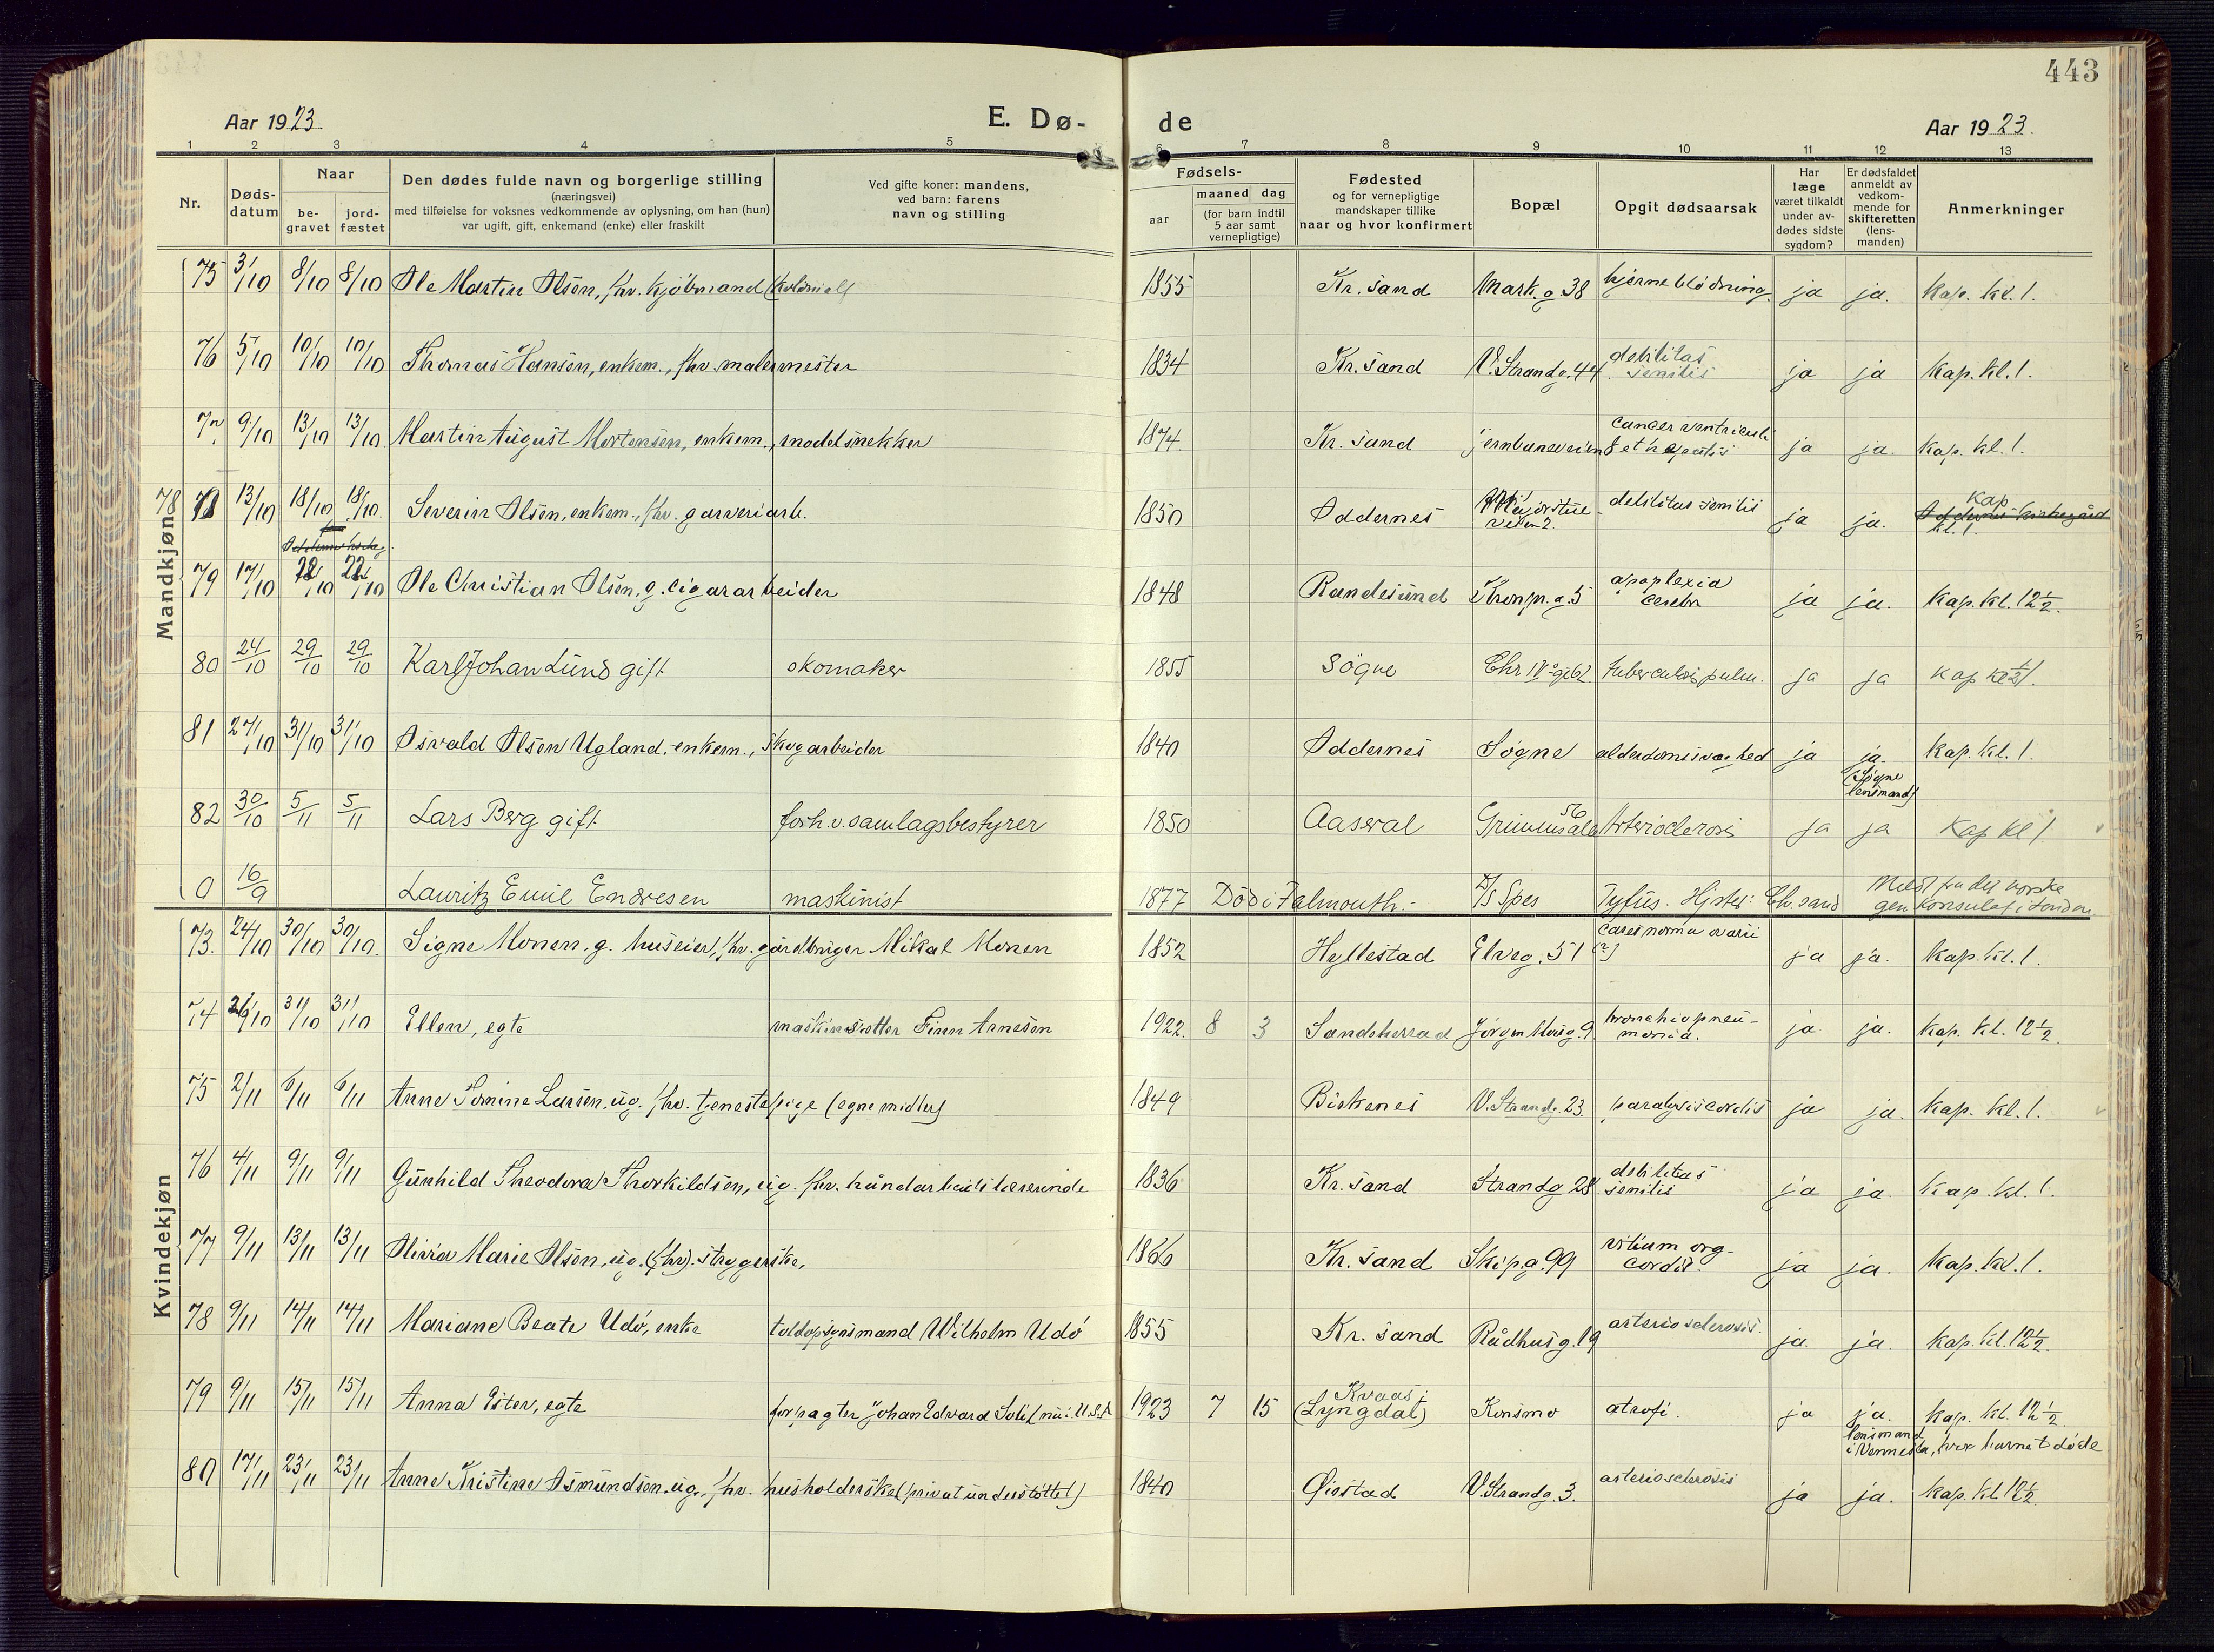 443
Aar 1923.
E. Dø-
de
Aar 1923.
1 2 3 4 5 6 7 8 9 10 11 12 13
Nr.
Døds-
datum
Naar
be-
gravet
jord-
fæstet
Den dødes fulde navn og borgerlige stilling
(næringsvei)
med tilføielse for voksnes vedkommende av oplysning, om han (hun)
var ugift, gift, enkemand (enke) eller fraskilt
Ved gifte koner: mandens,
ved barn: farens
navn og stilling
Fødsels-
aar
maaned dag
(for barn indtil
5 aar samt
vernepligtige)
Fødested
og for vernepligtige
mandskaper tillike
naar og hvor konfirmert
Bopæl
Opgit dødsaarsak
Har
læge
været tilkaldt
under av-
dødes sidste
sygdom?
Er dødsfaldet
anmeldt av
vedkom-
mende for
skifteretten
(lens-
manden)
Anmerkninger
Mandkjøn
75 3/10 8/10 8/10 Ole Martin Olsen, fhv. kjøbmand (kolonial) 1855 Kr. sand Mark. g 38 hjerneblødning. ja ja. Kap. kl. 1.
76 5/10 10/10 10/10 Thomas Hansen, enkem., fhv. malermester 1834 Kr. sand V. Strandg. 44 debilitas senilis ja ja Kap. kl. 1.
77 9/10 13/10 13/10 Martin August Mortensen, enkem., modelsnekker 1874. Kr. sand jernbaneveien 8 cancer ventriculi et hepatis ja ja. Kap. kl. 1.
78 13/10 18/10 18/10. Severin Olsen, enkem., fhv. garveriarb. 1850 Oddernes veien 2. debilitas senilis ja ja. Kap Oddernes kirkegård kl. 1.
79 17/10 22/10 22/10 Ole Christian Olsen, g. cigararbeider 1848 Randesund Kronpr. g. 5 apoplexia cerebr ja ja. Kap. kl. 12 1/2.
80 24/10 29/10 29/10 Karl Johan Lund gift skomaker 1855 Søgne Chr IV g 62. tuberculosis pulm. ja ja Kap kl 1.
81 27/10 31/10 31/10 Osvald Olsen Ugland, enkem., skogarbeider 1840 Oddernes Søgne alderdomssvaghed ja ja. (Søgne lensmand) Kap. kl. 1.
82 30/10 5/11 5/11 Lars Berg gift forh. v. samlagsbestyrer 1850 Aaseral Grimmsdalen 56 Arteriosclerosis ja ja Kap kl 1
0 16/9 Lauritz Emil Endresen maskinist 1877 Död i Falmouth.- D/S Spes Tyfus. Hjsted: Ch. sand Meldt fra det norske gen konsulat i London.
Kvindekjøn
73. 24/10 30/10 30/10. Signe Monen, g. huseier, fhv. gårdbruger Mikal Monen 1852 Hyllestad Elveg. 51 carcinoma ovarii (?) ja ja. Kap. kl. 1.
74 26/10 31/10 31/10 Ellen, egte maskinsetter Finn Arnesen 1922. 8 3 Sandeherred Jörgen Moeg. 9. bronchiopneu- monia. ja. ja. Kap. kl. 12 1/2.
75 2/11 6/11 6/11 Anne Tomine Larsen, ug. fhv. tjenestepige (egne midler) 1849 Birkenes V. Strandg. 23 paralysis cordis ja ja. Kap. kl. 1.
76 4/11 9/11 9/11 Gunhild Theodora Thorkildsen, ug. fhv. håndarbeidslærerinde 1836 Kr. sand Strandg 28 debilitas senilis ja ja. Kap. kl. 1.
77 9/11 13/11 13/11 Marie Olsen, ug. (fhv). strygerske, 1866 Kr. sand Skip. g. 99 vitium org- cordis. ja ja. Kap. kl. 1.
78 9/11 14/11 14/11 Mariane Beate Udö, enke toldopsynsmand Wilhelm Udö 1855 Kr. sand Rådhusg. 19 arteriosclerosis. ja. ja. Kap. kl. 12 1/2.
79 9/11 15/11 15/11 Anna Ester, egte forpagter Johan Edvard (nu i U.S.A 1923 7 15 Kvaas i (Lyngdal) Konsmo atrofi. ja ja. lensmand i Vennesla, hvor barnet døde Kap. kl. 12 1/2
80 17/11 23/11 23/11 Anne Kristine Osmundsen. ug., fhv. husholderske (privat understøttet) 1840 Øiestad V. Strandg. 3. arteriosclerosis ja ja. Kap. kl 12 1/2